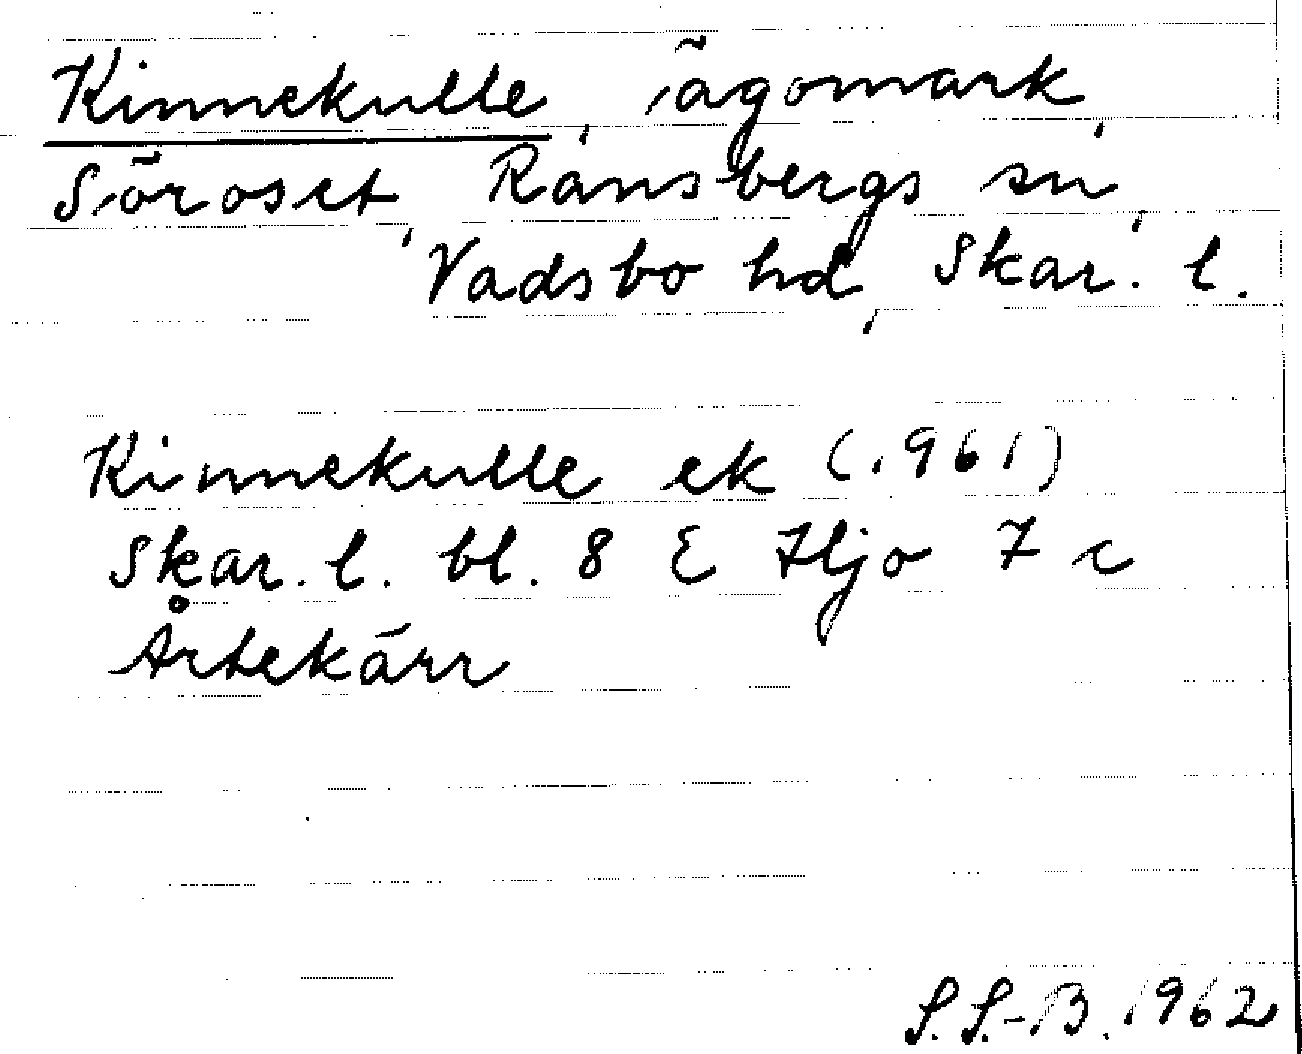 Kinnekulle, ägomark,
Söroset, Ransbergs sn,
Vadsbo hd, Skar. l.
Kinnekulle ek (1961)
Skar. l. bl. 8 E Hjo 7 c
Årtekärr
S.S.-B. 1962